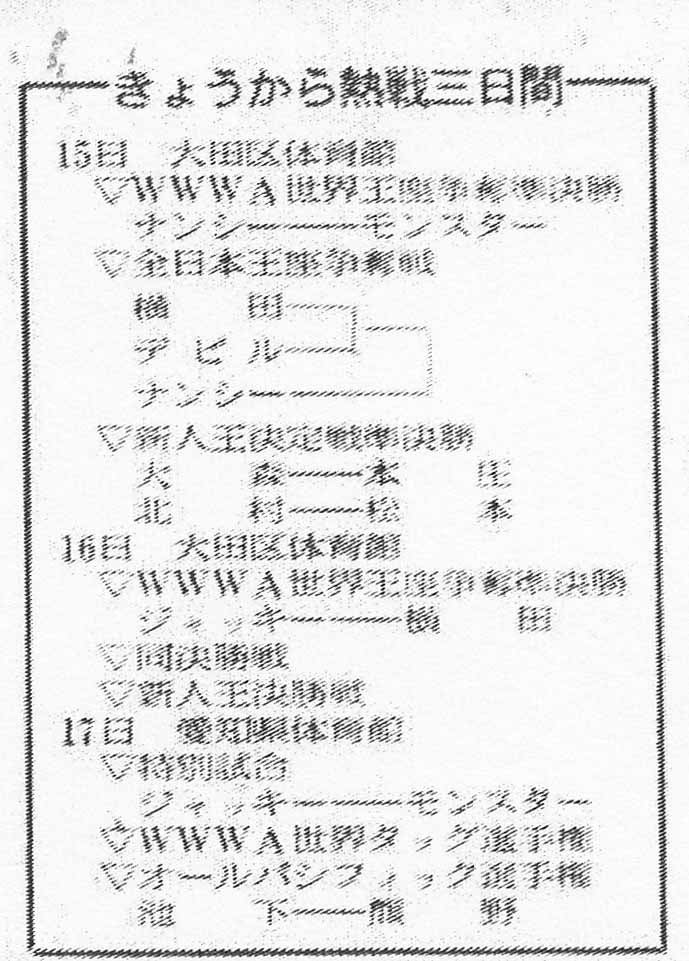 きょうから熱戦三日間
15日 大田区体育館
▽WWWA世界王座争奪準決勝
ナンシー――モンスター
▽全日本王座争奪戦
横田
デビル
ナンシー
▽新人王決定戦準決勝
大森――本庄
北村――松本
16日 大田区体育館
▽WWWA世界王座争奪準決勝
ジャッキー――横田
▽同決勝戦
▽新人王決勝戦
17日 愛知県体育館
▽特別試合
ジャッキー――モンスター
▽WWWA世界タッグ選手権
▽オールパシフィック選手権
池下――熊野